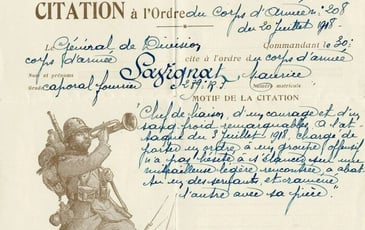 CITATION à l'Ordre du Corps d'Armée n: 208
du 20 Juillet 1918.
Le Général de Division Commandant le 30e
corps d'armée cite à l'ordre du corps d'armée
Nom et prénoms Savignat Maurice
Grade caporal fourrier Numéro matricule
MOTIF DE LA CITATION
"Chef de liaison, d'un courage et d'un
sang froid remarquables. A l'at-
taque du 3 Juillet 1918, chargé de
porter un ordre à un groupe
n'a pas hésité à s'élancer sur une
mitrailleuse légère rencontrée, a abat-
tu un des servants, et ramené
l'autre avec sa pièce"